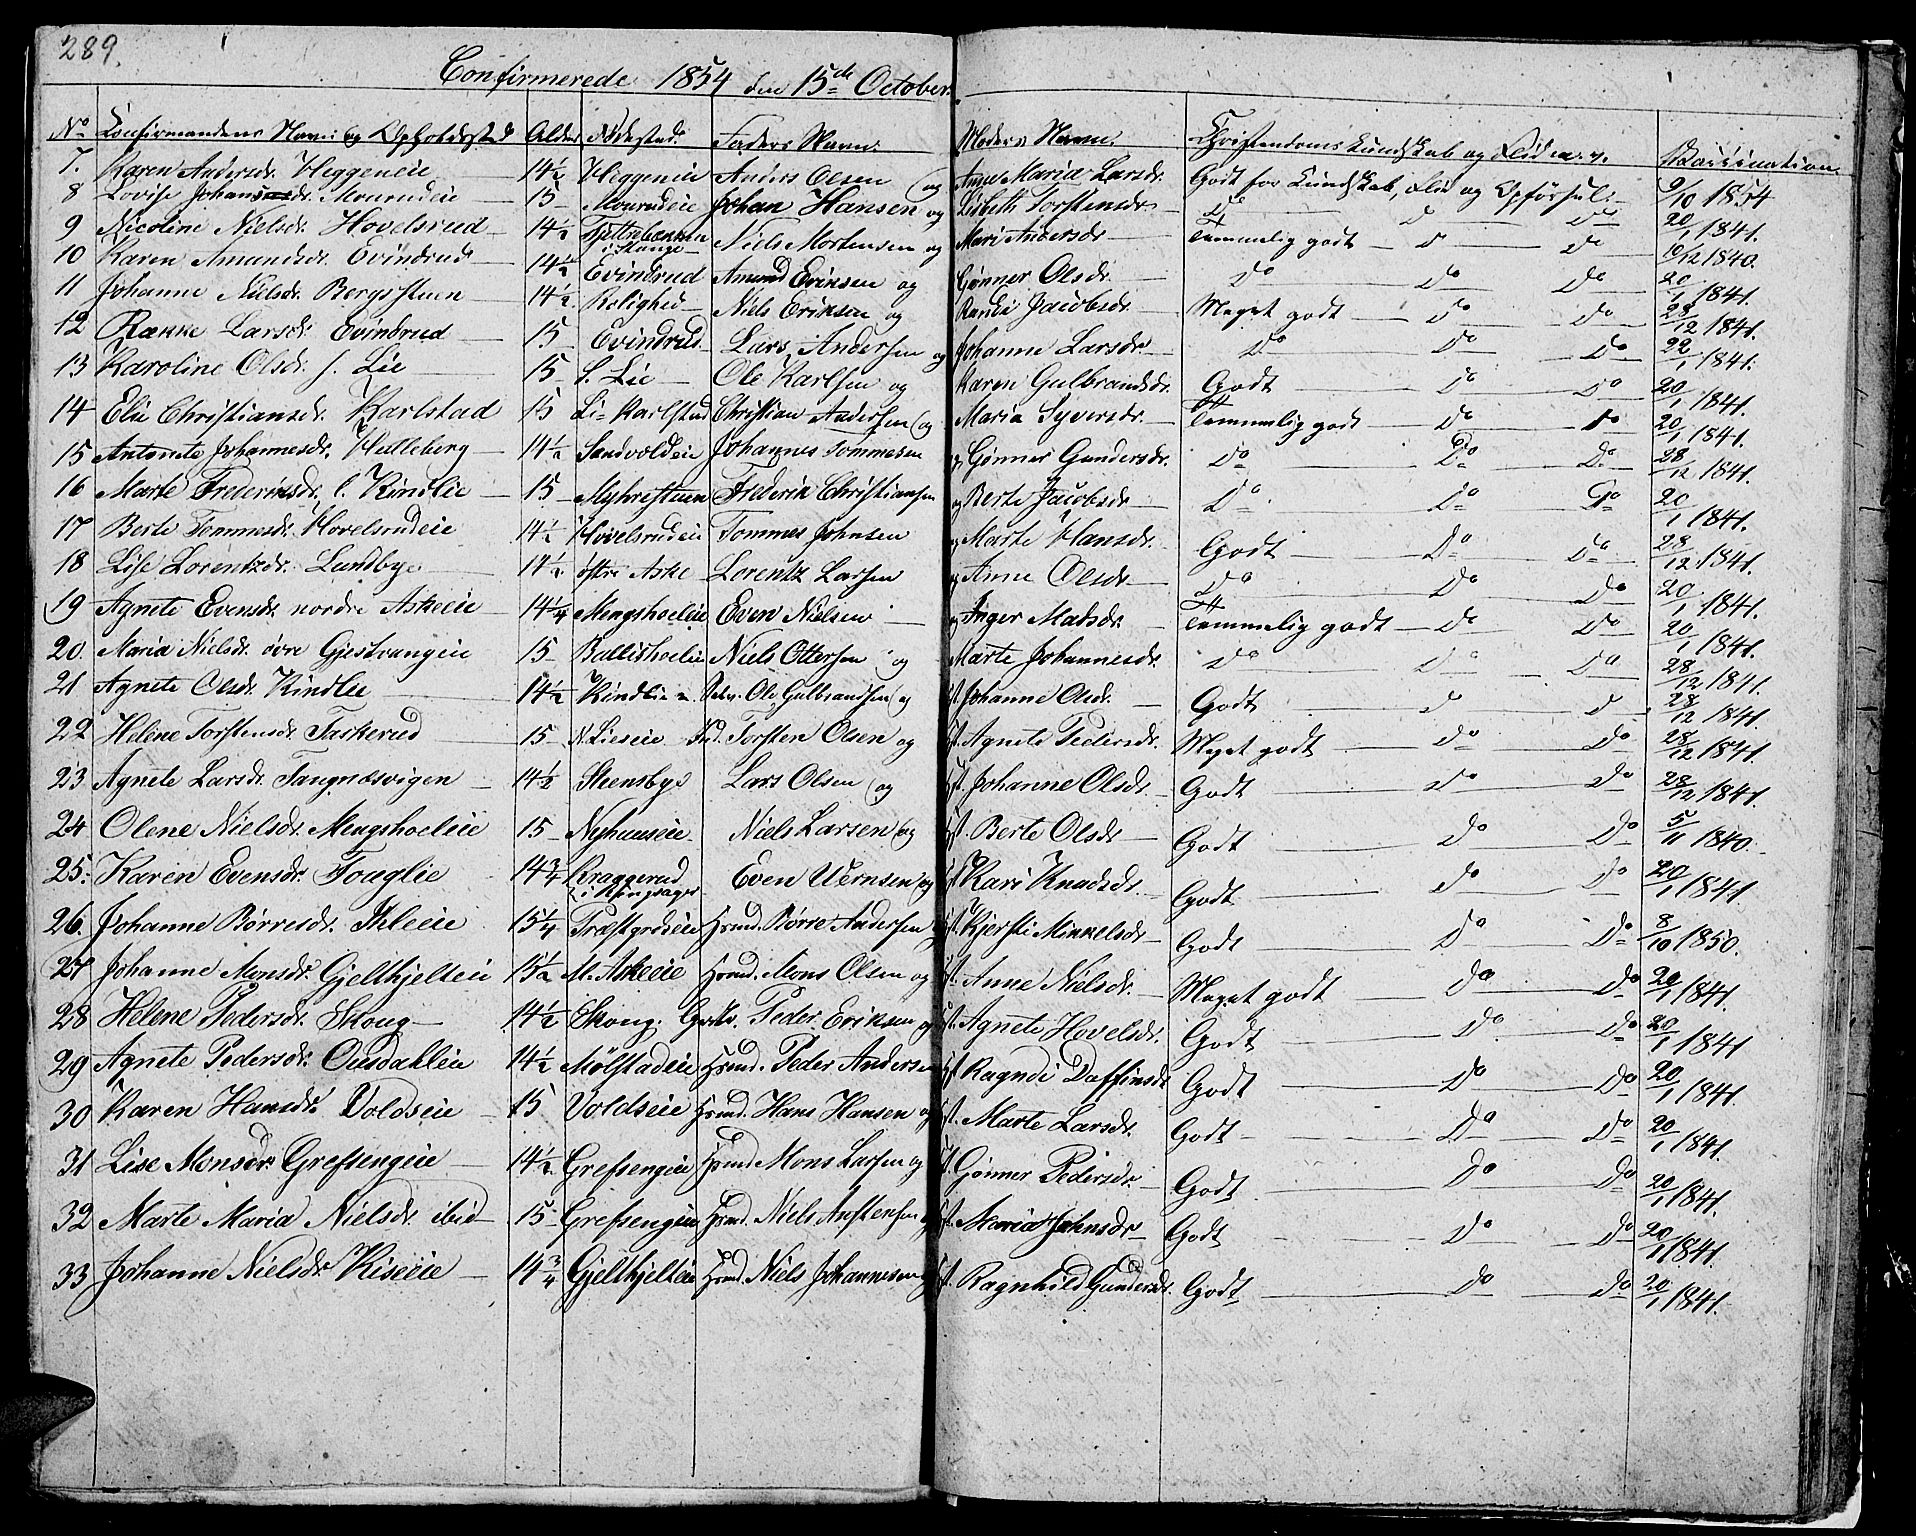 289.
Confirmerede 1854 den 15de October.
No Confirmandens Navn og Opholdssted Alder Fødested. Faders Navn. Moders Navn. Christendoms Kundskab og Flid m. v. Vaccination.
7. Karen Andersdr. Heggeneie 14½ Heggeneie Anders Olsen og Anne Maria Larsdr. Godt for Kundskab, Flid og Opførsel. 9/10 1854
8 Lovise Johansdr. Monrudeie 15 Monrudeie Johan Hansen og Lisbeth Torstensdr. Do Do Do 20/1 1841.
9 Nicoline Nielsdr. Hovelsrud 14½ Niels Mortensen og Mari Andersdr. Temmelig godt Do Do 10/12 1840.
10 Karen Amundsdr. Evindrud 14½ Evindrud Amund Evensen og Gønner Olsdr. Do Do Do 20/1 1841.
11 Johanne Nielsdr. Bergsstuen 14½ Rolighed Niels Eriksen og Randi Jacobsdr. Meget godt Do Do 28/12 1841.
12 Larsdr. Evindrud 15 Evindrud Lars Andersen og Johanne Larsdr. Do Do Do 22/1 1841.
13 Karoline Olsdr. s. Lie 15 S. Lie Ole Karlsen og Karen Gulbrandsdr. Godt Do Do 20/1 1841.
14 Elie Christiansdr. Karlstad 15 Li= Karlstad Christian Andersen og Maria Syversdr. Temmelig godt Do Do 20/1 1841.
15 Antonete Johannesdr. Hulleberg 14½ Sandvoldeie Johannes Tommesen og Gønner Gundersdr. Do Do Do 28/12 1841.
16 Marte Frederiksdr. l. Kindlie 15 Myhrestuen Frederik Christiansen og Berte Jacobsdr. Do Do Do 20/1 1841.
17 Berte Tommesdr. Hovelsrudeie 14½ Hovelsrudeie Tommes Johnsen og Marte Hansdr. Godt Do Do 28/12 1841.
18 Lise Lorentzdr. Lundbye 14½ østre Aske Lorentz Larsen og Anne Olsdr. Do Do Do 20/1 1841.
19 Agnete Evensdr. nordre Askeeie 14¼ Mengshoeleie Even Nielsen og Inger Madsdr. Temmelig godt Do Do 20/1 1841.
20. Maria Nielsdr. øvre Gjestvangeie 15 Ballishoeleie Niels Ottersen og Marte Johannesdr. Do Do Do 28/12 1841.
21 Agnete Olsdr. Kindlie 14½ Kindlie Ole Gulbrandsen og Hst. Johanne Olsdr. Godt Do Do 28/12 1841.
22 Helene Torstensdr. Taskerud 15 N. Lieseie Ind. Torsten Olsen og Hst. Agnete Pedersdr. Meget godt Do Do 28/12 1841.
23 Agnete Larsdr. Tangnæsvigen 14½ Steensbye Lars Olsen og Hst. Johanne Olsdr. Godt Do Do 28/12 1841.
24 Olene Nielsdr. Mengshoeleie 15 Nyhuuseie Niels Larsen og Hst. Berte Olsdr. Godt Do Do 5/11 1840.
25. Karen Evensdr. Fouglie 14¾ Kraggerud i Ringsager Even og Hst. Kari Knudsdr. Godt Do Do 20/1 1841.
26. Johanne Børresdr. Ihleeie 15¼ Hsmd. Børre Andersen og Hst. Kjersti Mikkelsdr. Godt Do Do 8/10 1850.
27 Johanne Monsdr. Gjelthjelteie 15½ M. Askeeie Hsmd. Mons Olsen og Hst. Anne Nielsdr. Meget godt Do Do 20/1 1841.
28 Helene Pedersdr. Skoug 14½ Skoug. Peder Eriksen og Hst. Agnete Hovelsdr. Godt Do Do 20/1 1841
29 Agnete Pedersdr. Ousdahleie 14½ Mølstadeie Hsmd. Peder Andersen Hst. Ragndi Daffinsdr. Godt Do Do 20/1 1841.
30 Karen Hansdr. Voldseie 15 Voldseie Hsmd. Hans Hansen og Hst. Marte Larsdr. Godt Do Do 20/1 1841.
31 Lise Monsdr. Grefsengeie 14½ Grefsengeie Hsmd Mons Larsen og Hst. Gønner Pedersdr. Godt Do Do 20/1 1841.
32 Marte Maria Nielsdr. ibid 15 Grefsengeie Hsmd. Niels Anstensen og Hst. Maria Johnsdr. Godt Do Do 20/1 1841.
33 Johanne Nielsdr. Kiseeie 14¾ Gjelthjelteie Hsmd. Niels Johannesen og Hst. Ragnhild Gundersdr. Godt Do Do 20/1 1841.